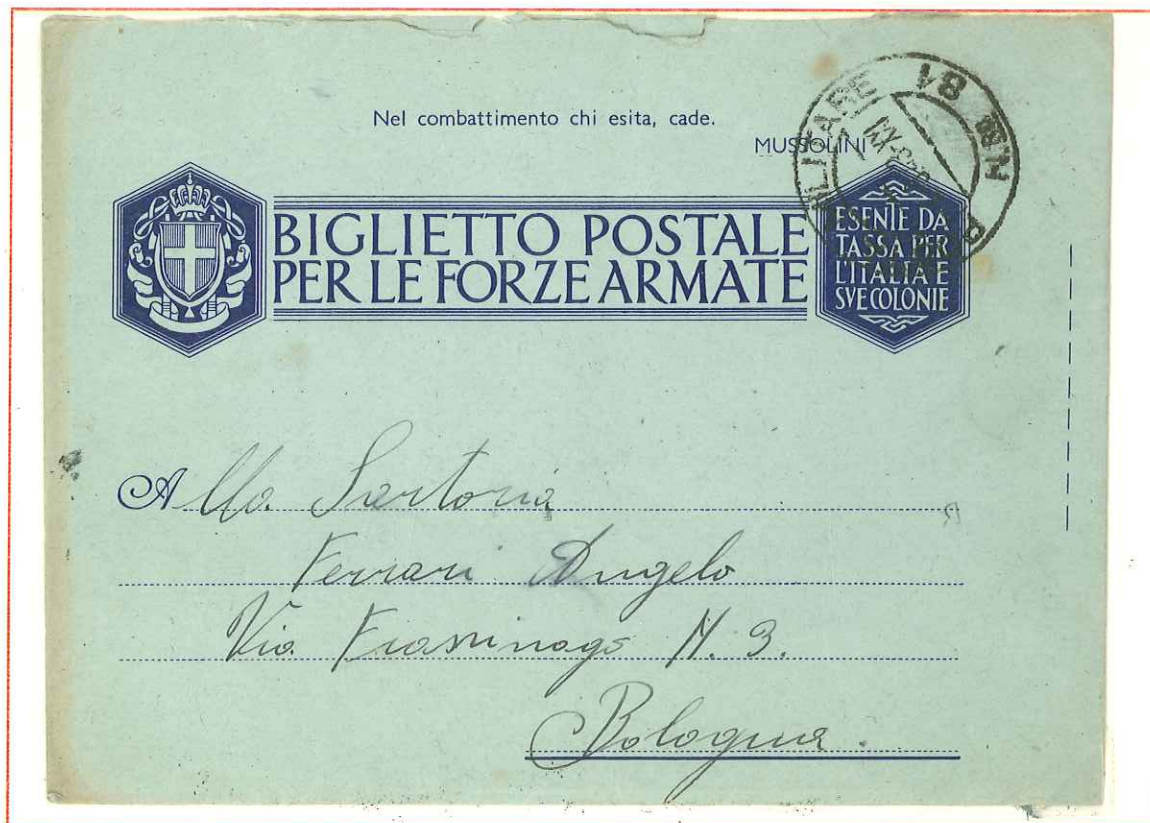 Nel combattimento chi esita, cade.
MUSSOLINI
BIGLIETTO POSTALE
PER LE FORZE ARMATE
ESENTE DA
TASSA PER
L'ITALIA E
SVE COLONIE
Alla Sartoria
Ferrari Angelo
Via Frassinago N. 3.
Bologna.